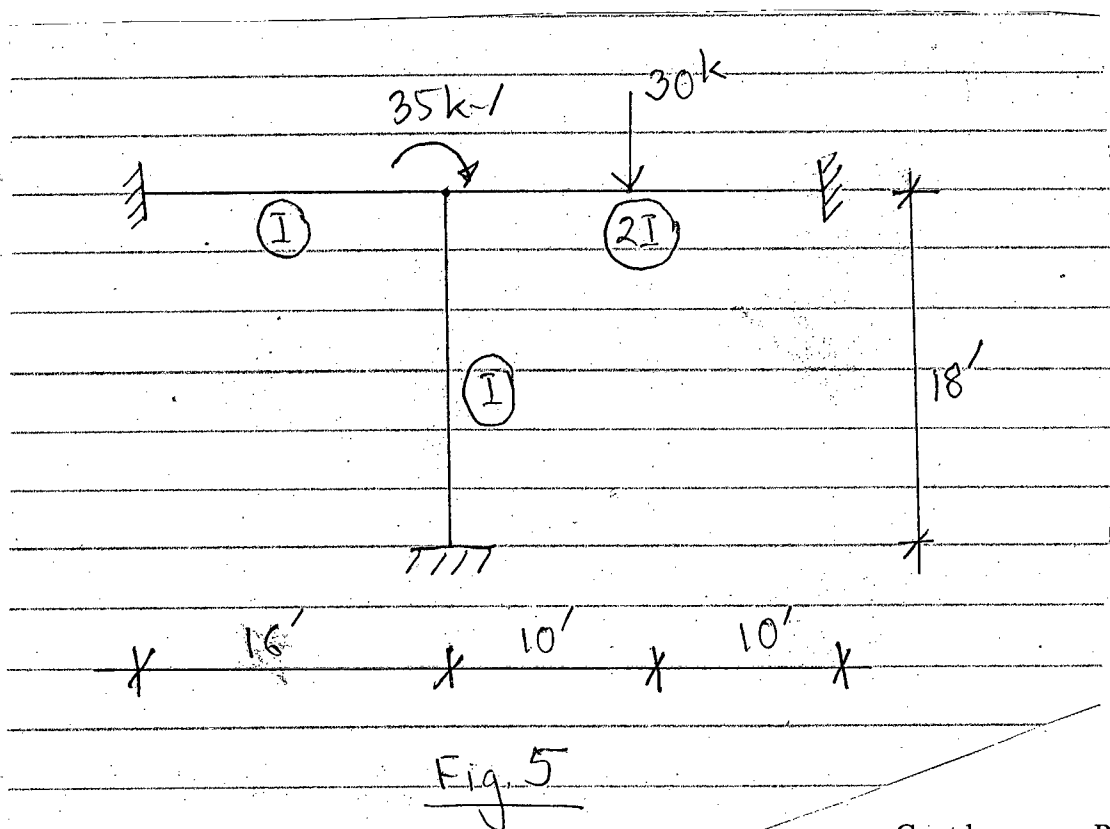 35k-'
30k
I
2I
I
18'
16'
10'
10'
Fig. 5